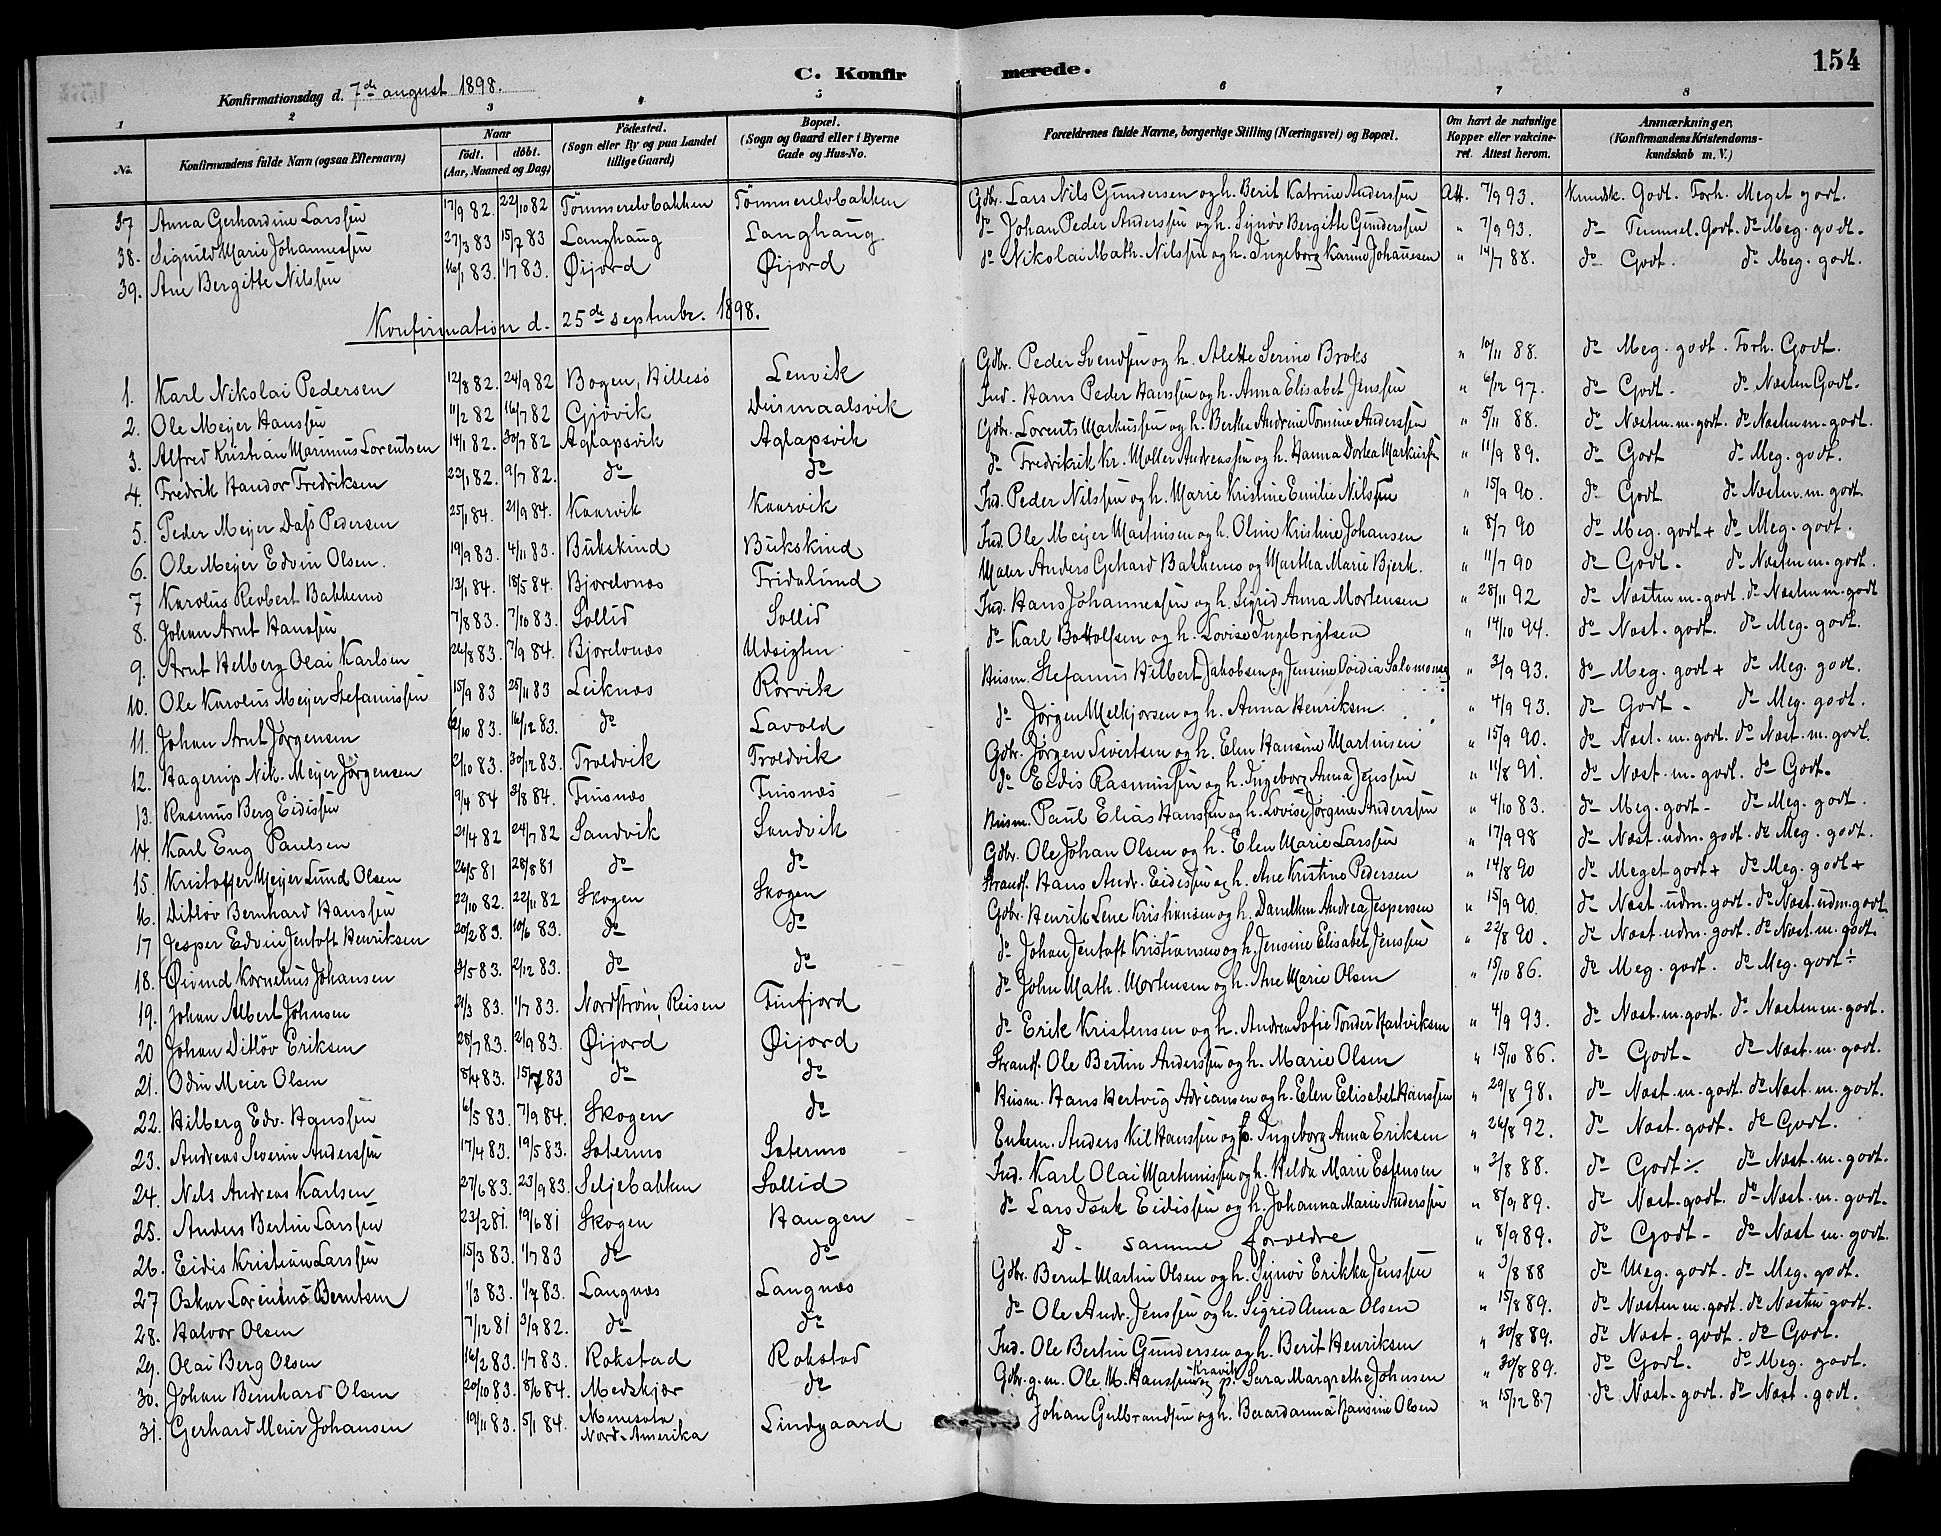 154
C. Konfirmerede.
Konfirmationsdag d. 7de august 1898.
1 2 3 4 5 6 7 8
No. Konfirmandens fulde Navn (ogsaa Efternavn) Naar født. døbt. (Aar, Maaned og Dag) Fødested. (Sogn eller By og paa Landet tillige Gaard) Bopæl. (Sogn og Gaard eller i Byerne Gade og Hus-No. Forældrenes fulde Navne, borgerlige Stilling (Næringsvei) og Bopæl. Om havt de naturlige Kopper eller vakcineret. Attest herom. Anmærkninger, (Konfirmandens Kristendomskundskab m. V.)
37 Anna Gerhardine Larssen 17/9 82. 22/10 82 Tømmerelvbakken Tømmerelvbakken Gdbr. Lars Nils Gundersen og h. Berit Katrine Anderssen Att. 7/9 93. Kundsk. Godt. Forh. Meget godt.
38. Signild Marie Johannessen 27/3 83 15/7 83 Langhaug Langhaug do Johan Peder Anderssen og h. Synøv Bergitte Gunderssen " 7/9 93. do Temmel. Godt. do Meg. godt.
39. Ane Bergitte Nilssen 16/1 83. 1/7 83. Øijord Øijord do Nikolai Math. Nilssen og h. Ingeborg Karine Johanesen " 14/7 88. do Godt. do Meg. godt.
Konfirmation d. 25de septembr. 1898.
1. Karl Nikolai Pedersen 12/8 82. 24/9 82 Bogen, Hillesø Lenvik Gdbr. Peder Svendsen og h. Alette Serine Broks " 10/11 88. do Meg. godt. Forh. Godt.
2. Ole Meyer Hanssen 11/2 82 16/7 82 Gjøvik Duismaalsvik Ind. Hans Peder Hanssen og h. Anna Elisabet Jenssen " 6/12 97. do Godt. do Næsten Godt.
3. Alfred Kristian Marinus Lorentsen 14/1 82. 30/7 82 Aglapsvik Aglapsvik Gdbr. Lorents Markussen og h. Berthe Andrine Tomine Anderssen " 5/11 88. do Næsten m. godt. do Næsten m. godt.
4. Fredrik Handor Fredriksen 22/1 82. 9/7 82. do do do Fredrikrik Kr. Møller Andreassen og h. Hanna Dortea Markussen " 11/9 89. do Godt do Meg. godt.
5. Peder Meyer Dass Pedersen 25/1 84. 21/9 84. Kaarvik Kaarvik Ind. Peder Nilssen og h. Marie Kristine Emilie Nilssen " 15/9 90. do Godt do Næsten m. godt.
6. Ole Meyer Edvin Olsen. 19/9 83. 4/11 83. Bukskind Bukskind Ind. Ole Meyer Martinsen og h. Oline Kristine Johansen " 8/7 90 do Meg. godt + do Meg. godt.
7 Karolus Robert Bakkemo 13/1 84. 18/5 84. Bjorelvnes Fridalund Maler Anders Gehard Bakkemo og Martha Marie Bjerk. " 11/7 90 do Godt. do Næsten m. godt.
8. Johan Arnt Hanssen 7/8 83. 7/10 83. Sollid Sollid Ind. Hans Johannessen og h. Sigrid Anna Mortensen " 28/11 92 do Næsten m. godt. do Næsten m. godt
9. Arnt Helberg Olai Karlsen 26/8 83. 7/9 84. Bjorelvnæs Udsigten do Karl Bottolfsen og h. Lovise Ingebrigtsen " 14/10 94. do Næst. godt. do Meg. godt.
10. Ole Karolus Meyer Stefanussen 15/9 83 25/11 83 Leiknæs Rørvik Husm. Stefanus Hilbert Jakobsen og Jensine Ovidia Salomonsen " 3/9 93. do Meg. godt + do Meg. godt.
11. Johan Arnt Jørgensen 12/10 83. 16/12 83. do Lavold do Jørgen Melkjorsen og h. Anna Henriksen. " 4/9 93. do Godt - do Meg. godt.
12. Hagerup Nik. Meyer Jørgensen 2/10 83. 30/12 83. Troldvik Troldvik Gdbr. Jørgen Sivertsen og h. Elen Hansine Martinsen " 15/9 90. do Næst. m. godt. do Næst. m. godt.
13. Rasmus Berg Eidissen 9/4 84 3/8 84. Finsnæs Finsnæs do Eidis Rasmussen og h. Ingeborg Anna Jenssen " 11/8 91. do Næst. m. godt. do Godt.
14. Karl Eng Paulsen 21/4 82 24/7 82 Sandvik Sandvik Husm. Paul Elias Hanssen og h. Lovise Jørgine Anderssen " 4/10 83. do Meg. godt - do Meg. godt.
15. Kristoffer Meyer Lund Olsen 26/5 81 28/8 81 do do Gdbr. Ole Johan Olsen og h. Elen Marie Larssen " 17/9 98 do Næst. udm. godt do Meg. godt.
16. Ditløv Bernhard Hanssen 22/10 82. 22/11 82 Skogen Skogen Strands. Hans Andr. Eidissen og h. Ane Kristine Pedersen " 14/8 90 do Meget godt + do Meg. godt +
17 Jesper Edvin Jentoft Henriksen 20/2 83. 10/6 83. do do Gdbr. Henrik Lene Kristiansen og h. Danelken Andrea Jespersen " 15/9 90. do Næst. udm. godt. do Næst. udm. godt
18. Øivind Kornelius Johansen 3/5 83. 2/12 83. do do do Johan Jentoft Kristiansen og h. Jensine Elisabet Jenssen " 22/8 90. do Næst. udm. godt. do Næst. m. godt.
19. Johan Albert Johnsen 21/3 83. 1/7 83. Nordstrøm, Reisen Finfjord do John Math. Mortensen og h. Ane Marie Olsen " 15/10 86. do Meg. godt. do Meg. godt ÷
20 Johan Ditløv Eriksen 28/7 83. 2/9 83. Øijord Øijord do Erik Kristensen og h. Andrea Sofie Tonder Hartviksen " 4/9 93. do Næst. m. godt. do Næsten m. godt.
21. Odin Meier Olsen 8/4 83. 15/7 83 do do Strands. Ole Bertin Anderssen og h. Marie Olsen " 15/10 86. do Godt - do Næst. m. godt.
22. Hilberg Edv. Hanssen 6/5 83. 7/9 84. Skogen do Husm. Hans Hertvig Adriansen og h. Elen Elisabet Hanssen " 29/8 98. do Næst. m. godt. do Næst. m. godt.
23. Andreas Severin Anderssen 17/4 83. 19/5 83. Sætermo Sætermo Enkem. Anders Kil Hanssen og h. Ingeborg Anna Eriksen " 26/8 92. do Næst. godt. do Godt.
24. Nels Andreas Karlsen 27/6 83. 23/9 83. Seljebakken Sollid Ind. Karl Olai Martinussen og h. Hilda Marie Espensen " 3/8 88. do Godt ÷ do Næst. m. godt.
25. Anders Bertin Larssen 23/2 81. 19/6 81 Skogen Haugen do Lars Isak Eidissen og h. Johanna Marie Anderssen " 8/9 89. do Næst. godt. do Næst. m. godt.
26. Eidis Kristian Larssen 15/3 83. 1/7 83 do do D- samme forældre " 8/9 89. do Godt - do Næst m. godt.
27 Oskar Lorentus Berntsen 1/3 83. 1/7 83. Langnæs Langnæs Gdbr. Bernt Martin Olsen og h. Synøv Erikka Jenssen " 3/8 88 do Meg. godt. do Meg. godt.
28. Halvor Olsen 7/12 81 3/9 82. do do do Ole Andr. Jenssen og h. Sigrid Anna Olsen " 15/8 89. do Næsten m. godt. do Næsten godt.
29. Olai Berg Olsen 16/2 83. 1/7 83. Rokstad Rokstad Ind. Ole Bertin Gundersen og h. Berit Henriksen " 30/8 89. do Næst. godt. do Godt.
30. Johan Bernhard Olsen 20/10 83. 8/6 84. Medskjær do Gdbr. g. m. Ole M. Hanssen Kravik og p. Sara Margrethe Johnsen " 30/8 89. do Godt. do Meg. godt.
31. Gerhard Meier Johansen 19/11 83. 5/1 84. Minesota Nord-Amerika Lindgaard Johan Gulbrandsen og h. Berardanna Hansine Olsen " 15/12 87 do Næst. godt. do Næst. godt.